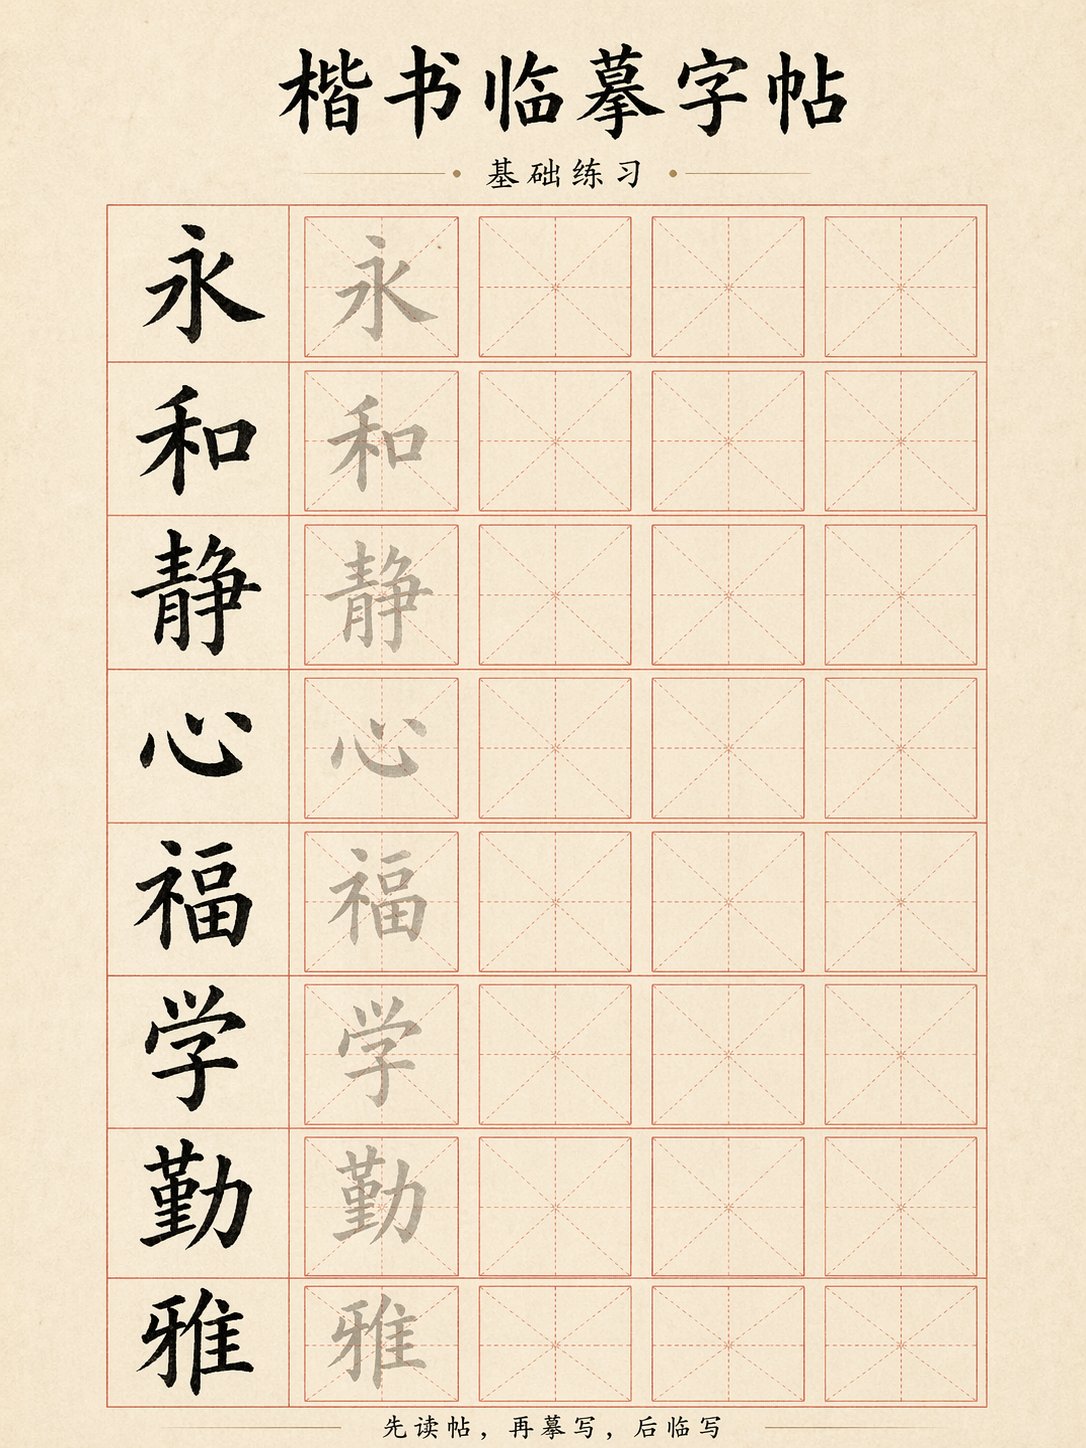 楷书临摹字帖
基础练习
永 永
和 和
静 静
心 心
福 福
学 学
勤 勤
雅 雅
先读帖，再摹写，后临写